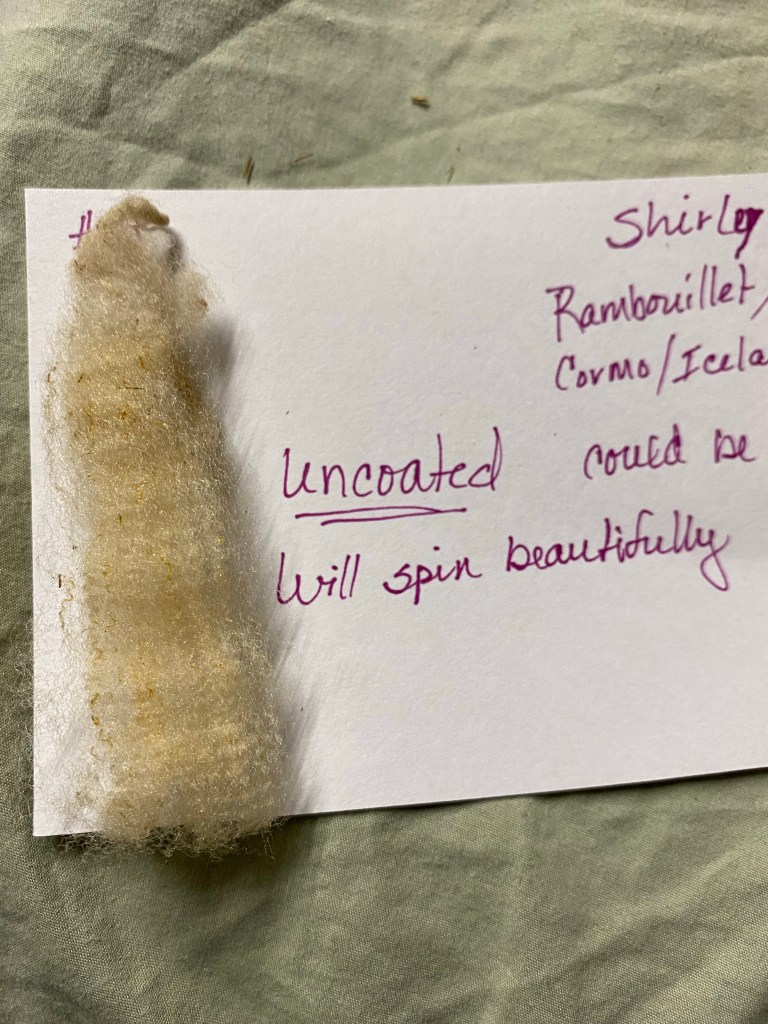 #
Shirley
Rambouillet/
Cormo/Icela
Uncoated could be
Will spin beautifully